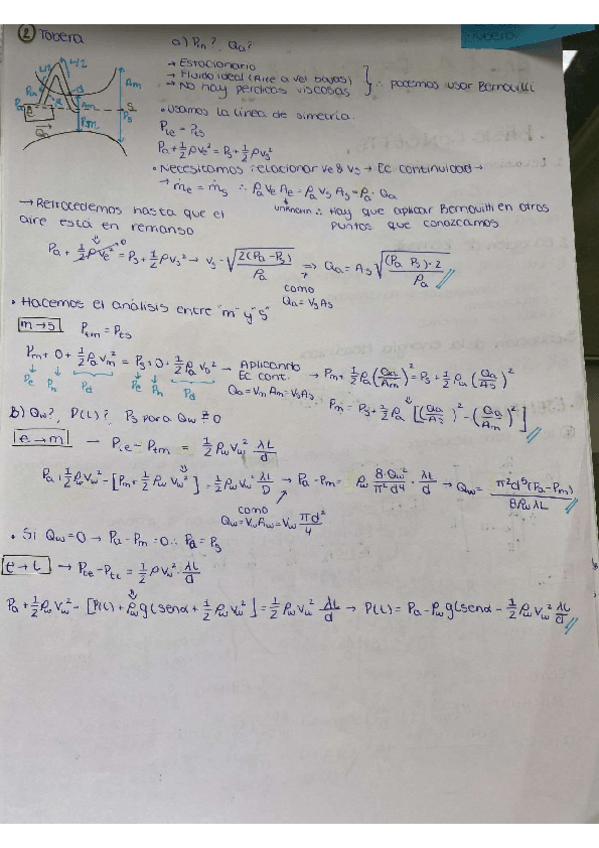 ② Tobera
a) Pm?, Qa?
→ Estacionario
→ Fluido ideal (Aire a vel bajas)
→ No hay pérdidas viscosas
} ∴ podemos usar Bernouilli
• Usamos la línea de simetría.
Pte = Pts
Pa + 1/2 ρ ve² = Ps + 1/2 ρ vs²
• Necesitamos relacionar ve & vs → Ec continuidad →
→ ṁe = ṁs ∴ ρa ve Ae = ρa vs As = ρa · Qa
unknown ∴ Hay que aplicar Bernouilli en otros
puntos que conozcamos
→ Retrocedemos hasta que el
aire está en remanso
Pa + 1/2 ρ ve² →0 = Ps + 1/2 ρ vs² → vs = √(2(Pa - Ps)/ρa) ⇒ Qa = As √((Pa Ps)·2/ρa)
como
Qa = vs As
• Hacemos el análisis entre "m" y "s"
m→s Ptm = Pts
Pm + 0 + 1/2 ρa vm² = Ps + 0 + 1/2 ρa vs² → Aplicando → Pm + 1/2 ρa (Qa/Am)² = Ps + 1/2 ρa (Qa/As)²
Ec cont.
Pe Ph Pd Pe Ph Pd
Qa = vm Am = vs As
Pm = Ps + 1/2 ρa [(Qa/As)² - (Qa/Am)²]
b) Qw?, P(L)?, Ps para Qw ≥ 0
e→m — Pte - Ptm = 1/2 ρw vw² λL/d
Pa + 1/2 ρw vw² - [Pm + 1/2 ρw vw²] = 1/2 ρw vw² λL/D → Pa - Pm = ρw 8·Qw²/π²d⁴ · λL/d → Qw = π²d⁵(Pa - Pm)/8ρw λL
como
Qw = vw Aw = vw πd²/4
• Si Qw = 0 → Pa - Pm = 0 ∴ Pa = Ps
e→L → Pte - PtL = 1/2 ρ vw² · λL/d
Pa + 1/2 ρw vw² - [P(L) + ρw g L senα + 1/2 ρw vw²] = 1/2 ρw vw² λL/d → P(L) = Pa - ρw g L senα - 1/2 ρw vw² λL/d